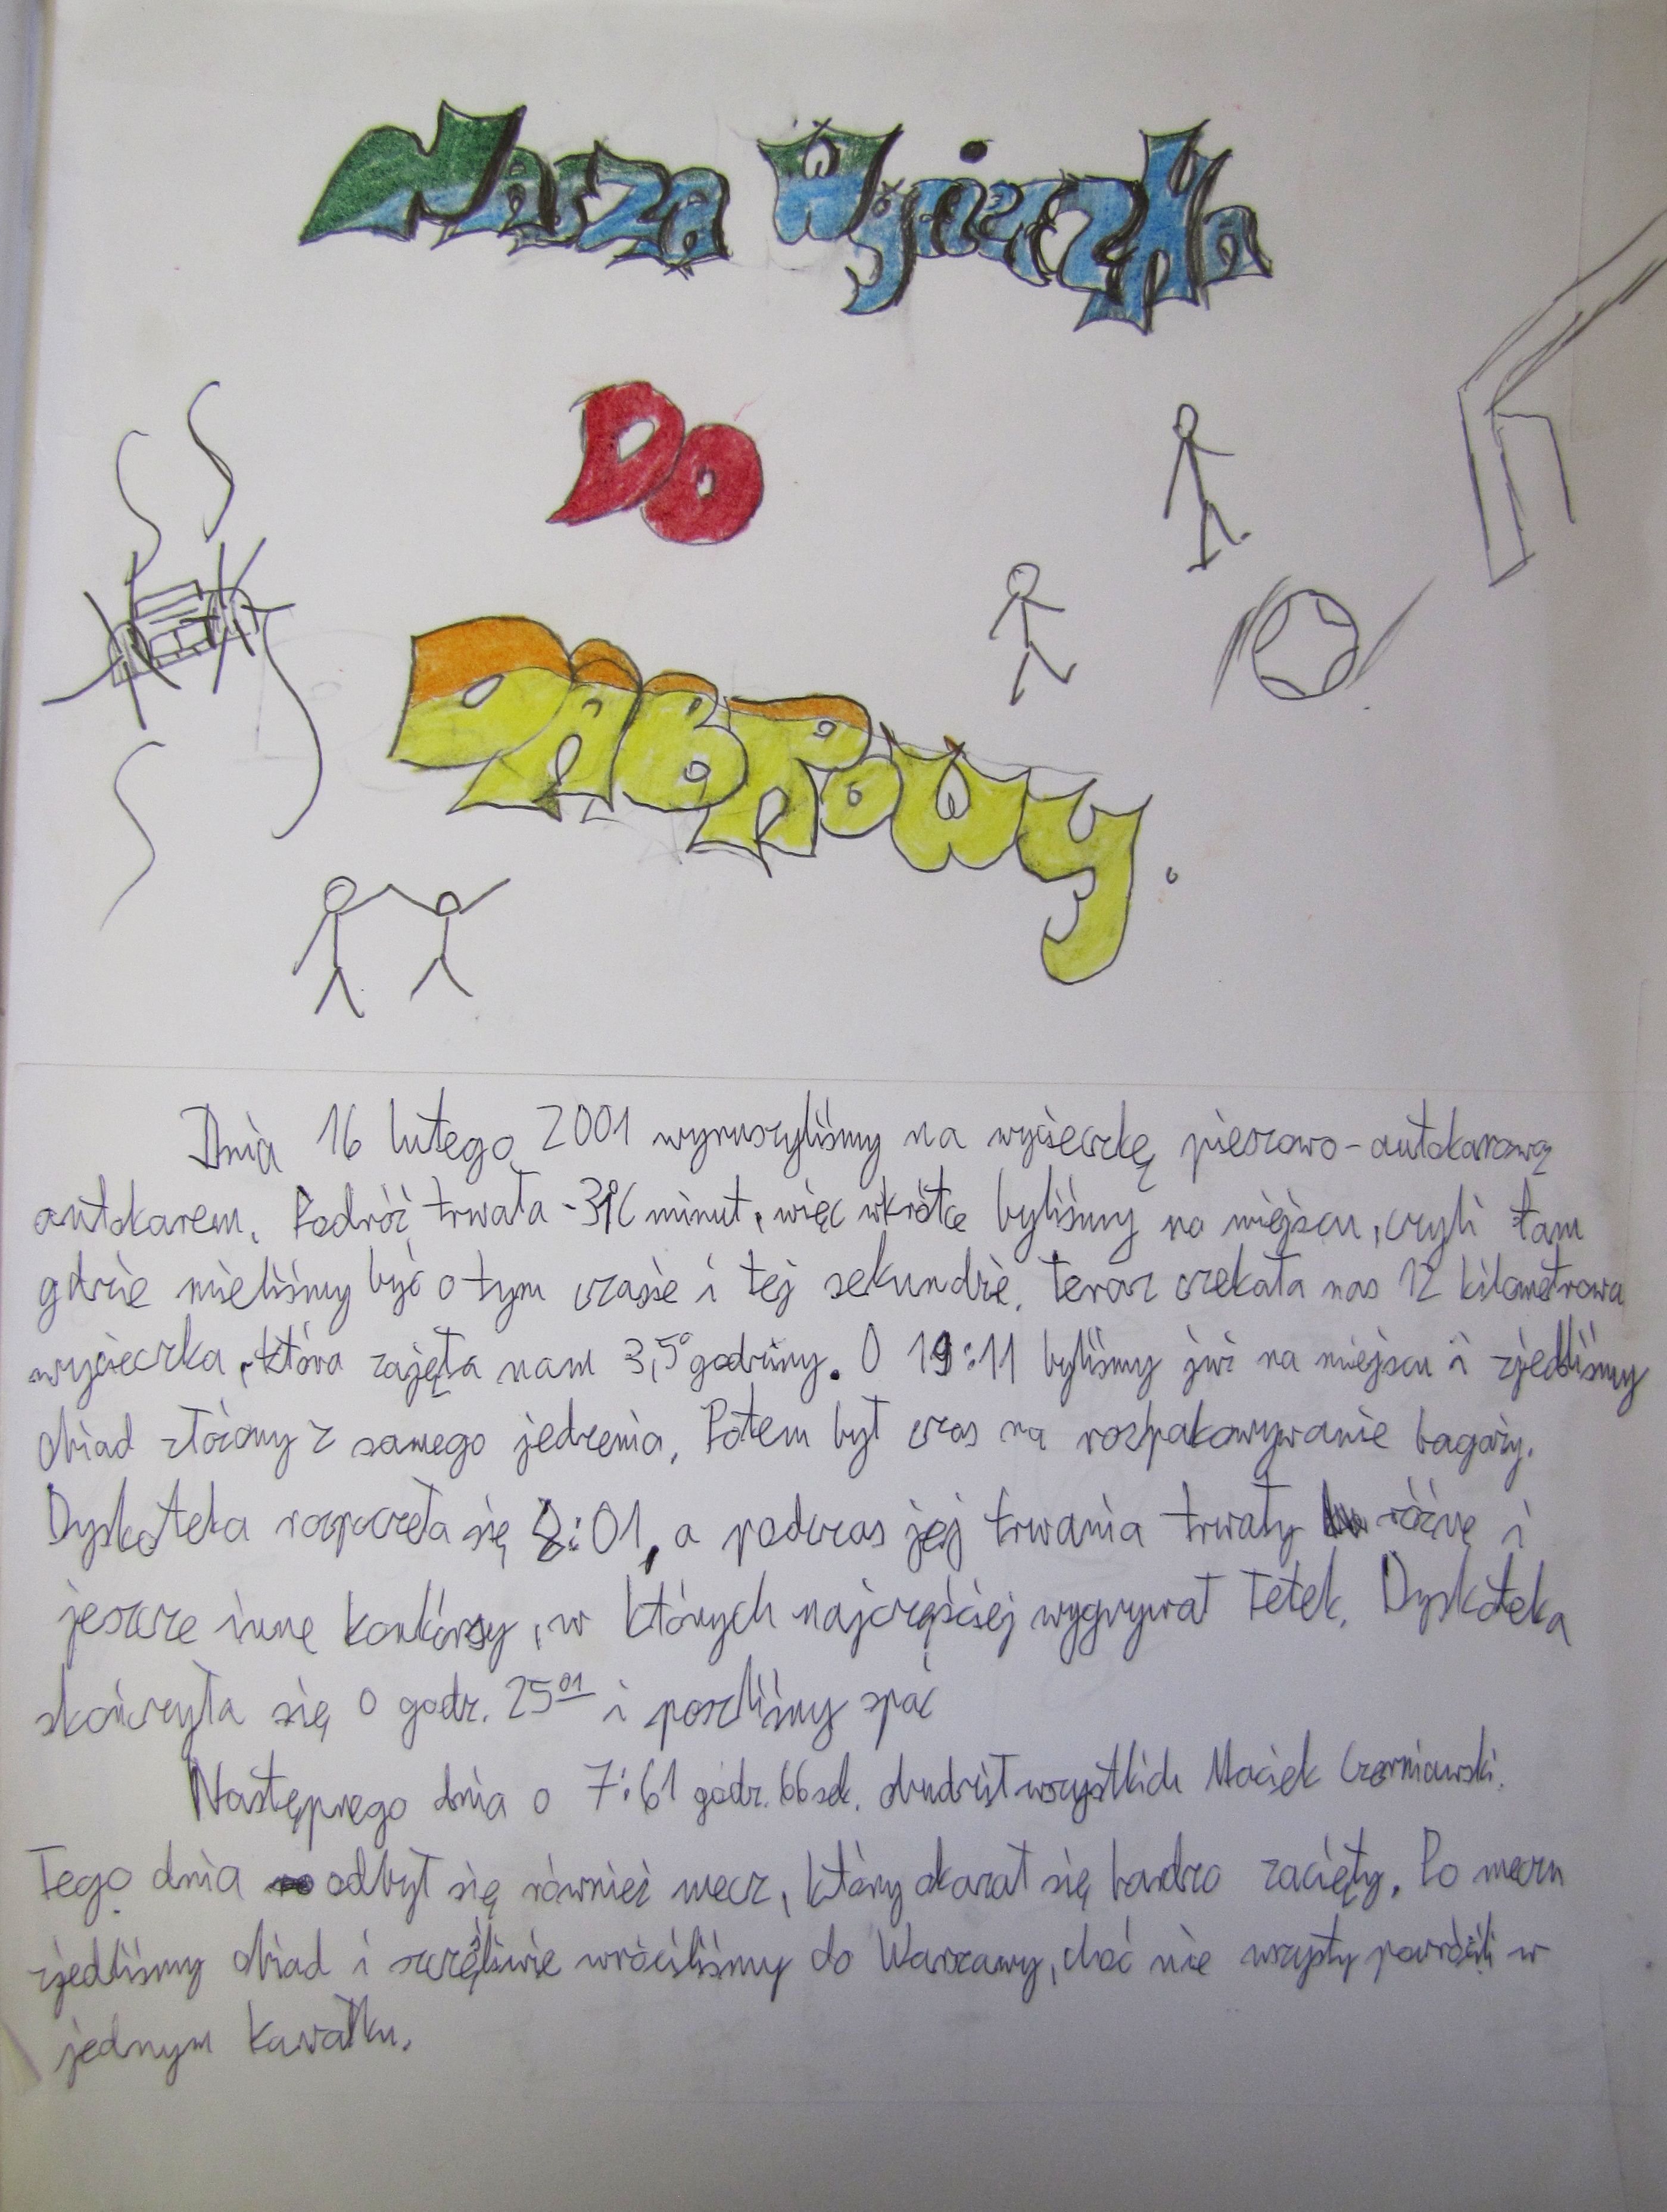 Nasza Wycieczka
Do
DĄBROWY.
Dnia 16 lutego 2001 wyruszyliśmy na wycieczkę pieszowo-autokarową
autokarem. Podróż trwała minut, więc wkrótce byliśmy na miejscu, czyli tam
gdzie mieliśmy być o tym czasie i tej sekundzie. teraz czekała nas 12 kilometrowa
wycieczka, która zajęła nam 3,5° godziny. O 19:11 byliśmy już na miejscu i zjedliśmy
obiad złożony z samego jedzenia. Potem był czas na rozpakowywanie bagaży.
Dyskoteka rozpoczeła się 8:01, a podczas jej trwania trwały różne i
jeszcze inne konkórsy, w których najczęściej wygrywał Tetek. Dyskoteka
skończyła się o godz. 25⁰¹ i poszliśmy spać
Następnego dnia o 7:61 godz. 66 sek. obudził wszystkich Maciek Czerniawski.
Tego dnia odbył się również mecz, który okazał się bardzo zacięty. Po meczu
zjedliśmy obiad i szczęśliwie wróciliśmy do Warszawy, choć nie wszysty powrócili w
jednym kawałku.